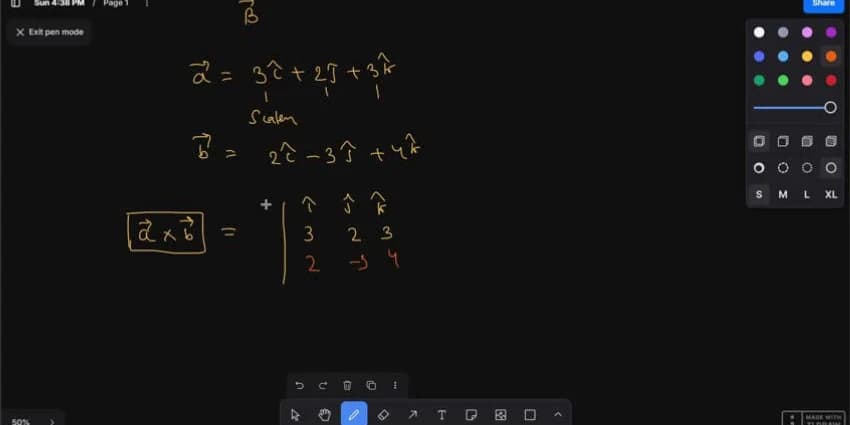 Sun 4:38 PM / Page 1
Share
Exit pen mode
B⃗
a⃗ = 3î + 2ĵ + 3k̂
Scalar
b⃗ = 2î − 3ĵ + 4k̂
î ĵ k̂
a⃗ × b⃗ = 3 2 3
2 −3 4
S M L XL
50%
MADE WITH
TLDRAW